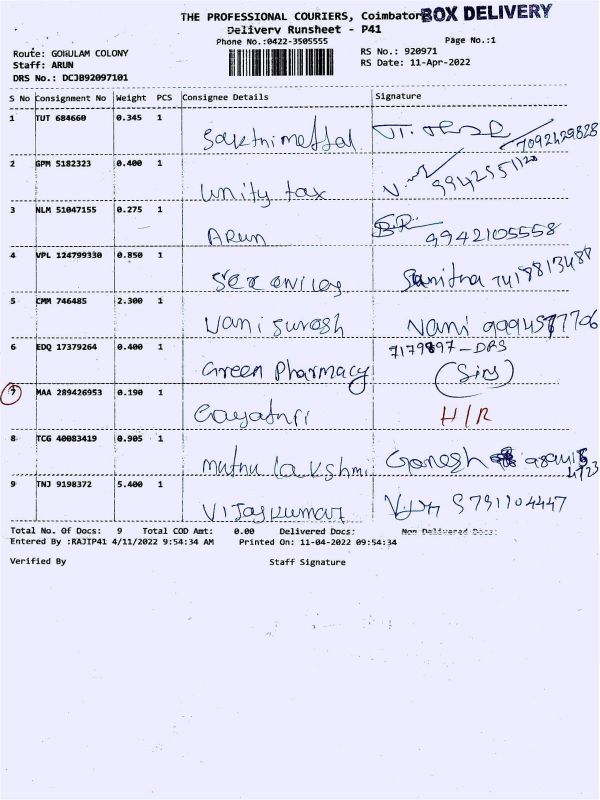 THE PROFESSIONAL COURIERS, Coimbator BOX DELIVERY
Delivery Runsheet - P41
Phone No.:0422-3505555 Page No.:1
Route: GOKULAM COLONY RS No.: 920971
Staff: ARUN RS Date: 11-Apr-2022
DRS No.: DCJB92097101
S No Consignment No Weight PCS Consignee Details Signature
1 TUT 684660 0.345 1
Sakthimettal 7092429828
2 GPM 5182323 0.400 1
Unity tax
3 NLM 51047155 0.275 1
Arun 9942105558
4 VPL 124799330 0.850 1
5 CMM 746485 2.300 1
Vani suresh Vani 9994577706
6 EDQ 17379264 0.400 1 7179897-DRS
Green Pharmacy
7 MAA 289426953 0.190 1
Gayathri H/R
8 TCG 40083419 0.905 1
muthu lakshmi Ganesh
9 TNJ 9198372 5.400 1
Vijaykumar 9791104447
Total No. Of Docs: 9 Total COD Amt: 0.00 Delivered Docs: Non Delivered Docs:
Entered By :RAJIP41 4/11/2022 9:54:34 AM Printed On: 11-04-2022 09:54:34
Verified By Staff Signature